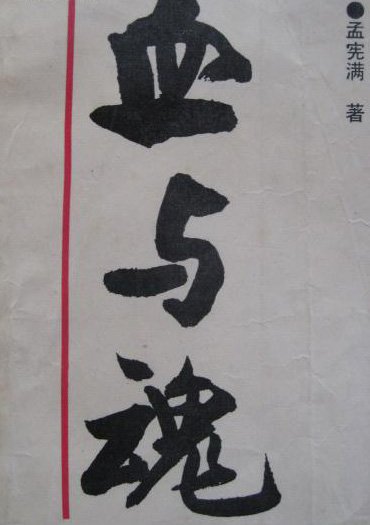 ●孟宪满 著
血与魂